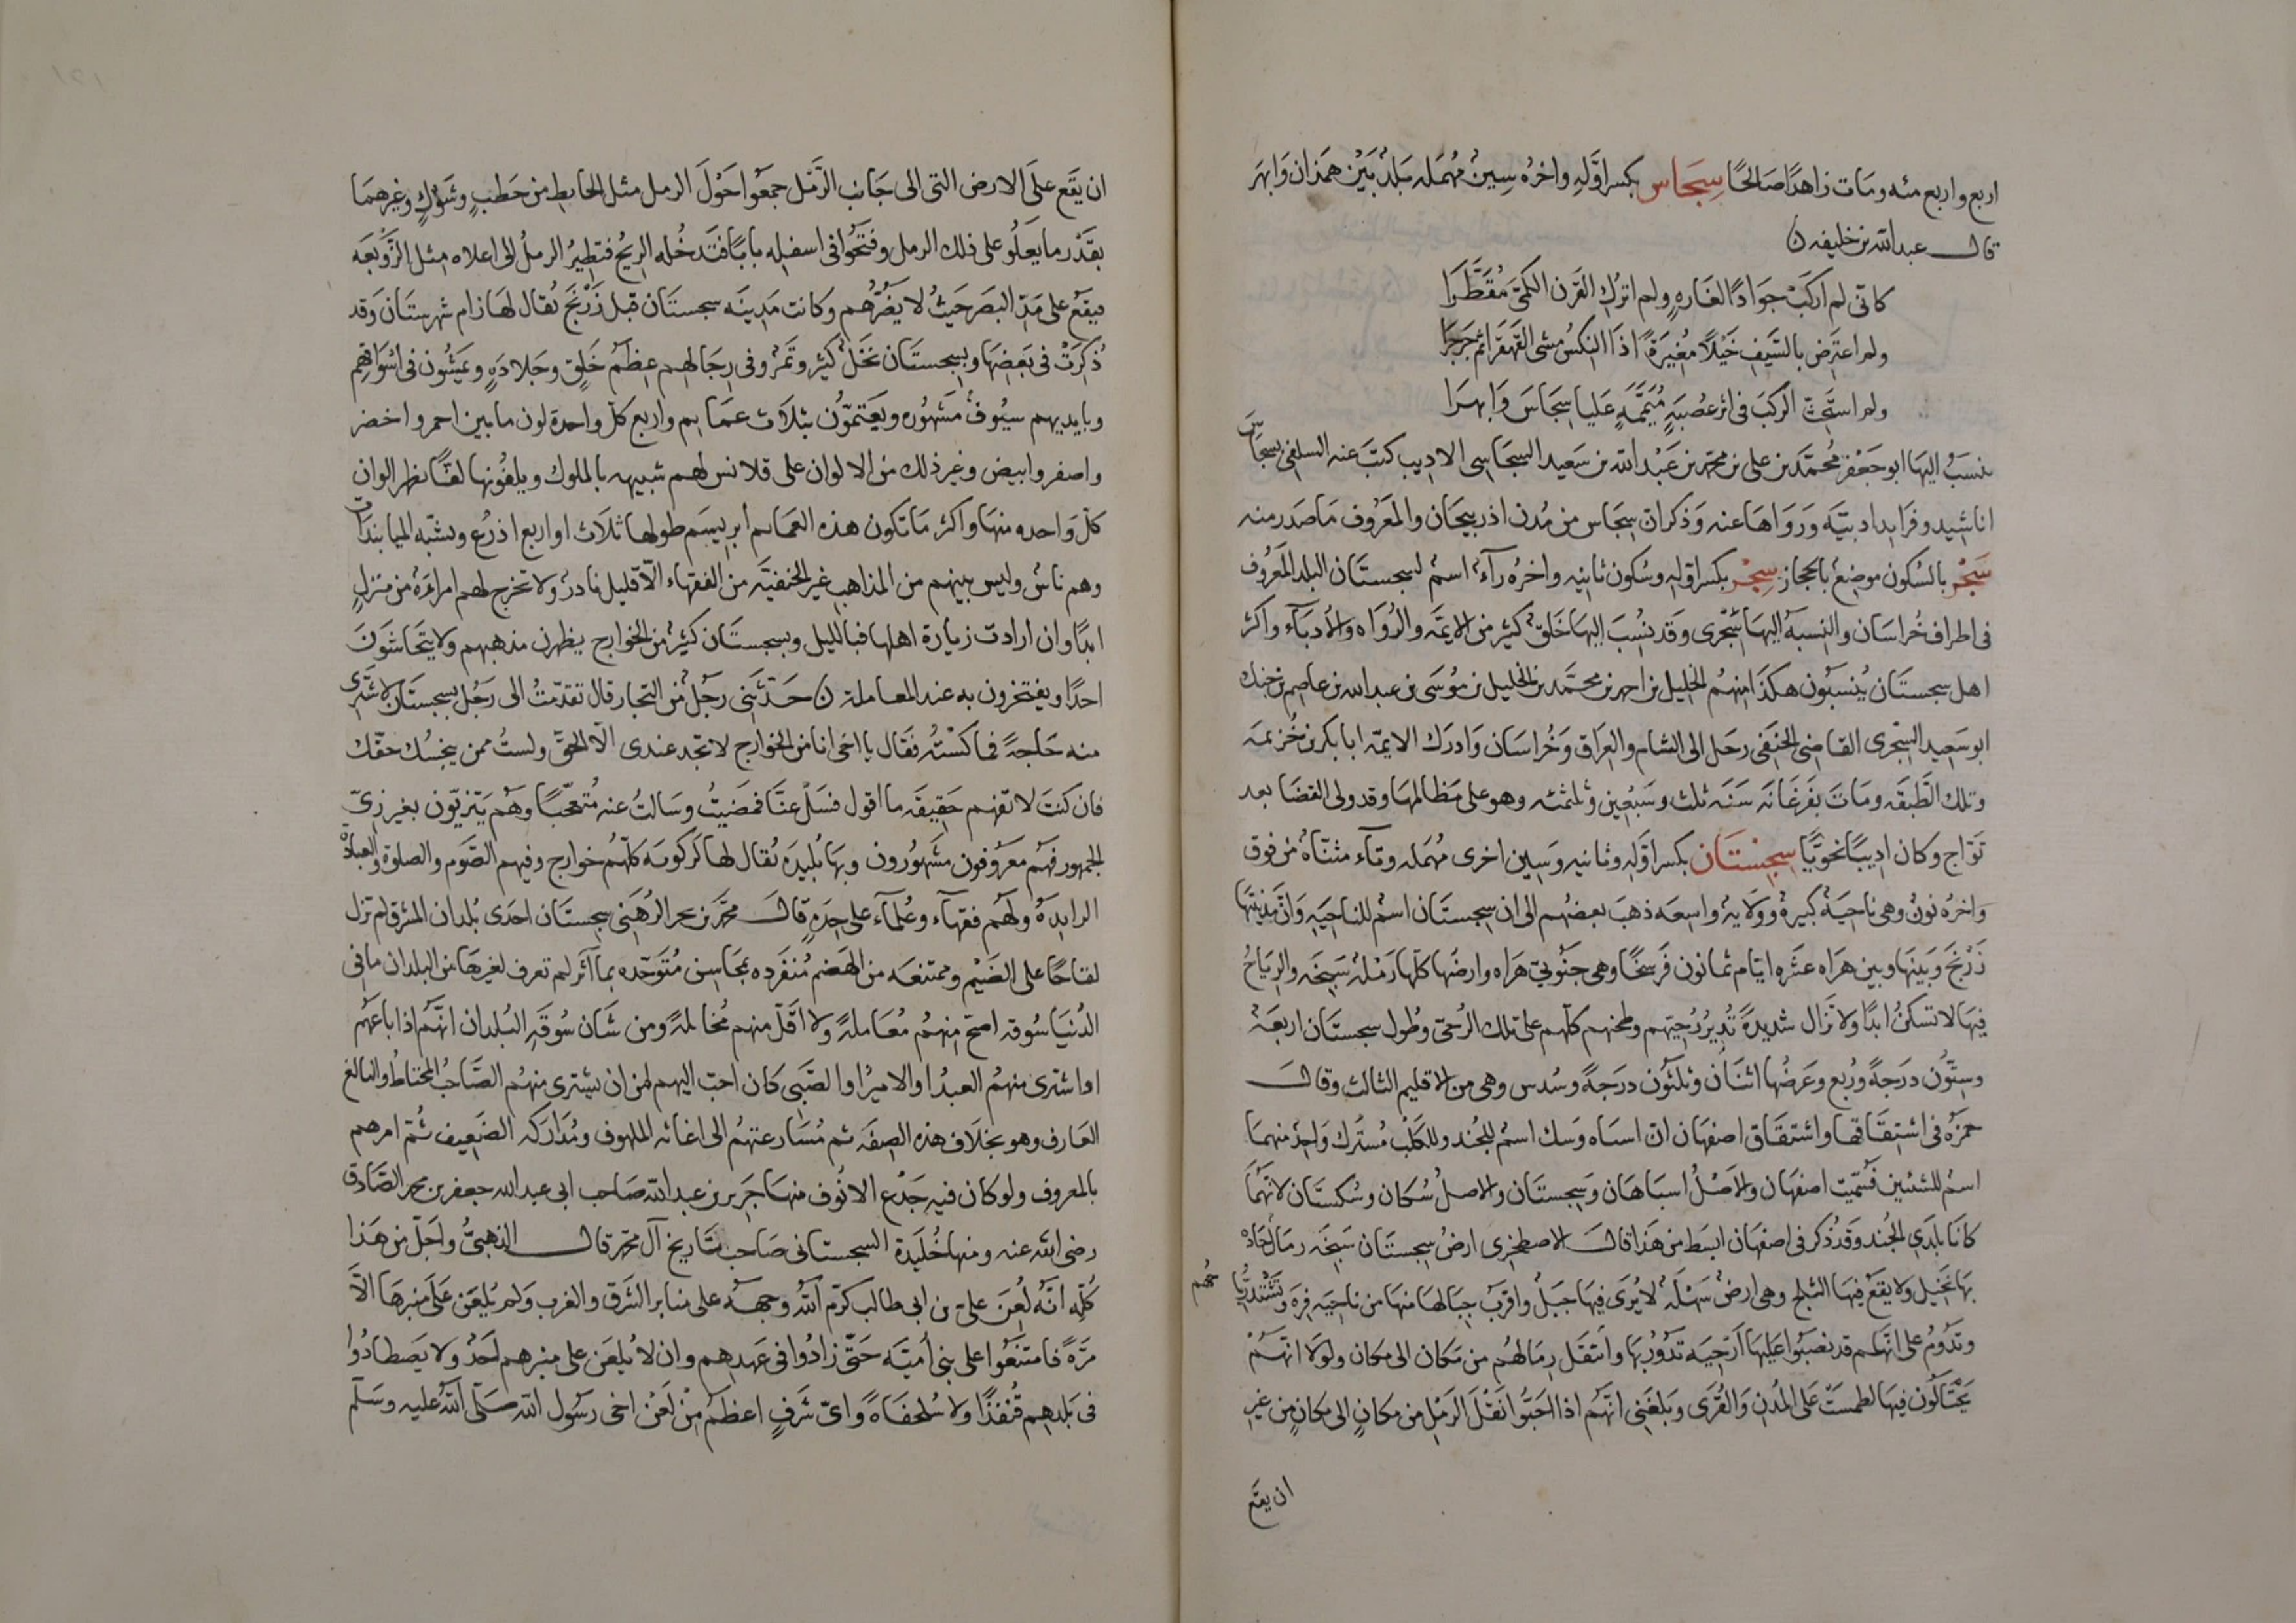 اربع واربع مئه ومات زاهدًا صالحًا سِجَاس بكسر اوّلهِ واخرُه سِينٌ مُهمَله بَلدٌ بَيْن هَمَذان وَابهَر
قال عبد الله بن خليفه ن
كانّى لم اركَبْ جوادًا لغارهٍ ولم اترُك القَرن الكمىَّ مُقَطَّرَا
ولم اعترِض بالسَّيفِ خَيْلاً مُغيرَةً اذا النِكسُ مشى القهقَرا ثم جَرجَرَا
ولم استحِثّ الركبَ فى اثر عُصبَةٍ مُيَمّمَةٍ عَليا سِجَاسَ وَابهَرَا
ينسَبُ اليهَا ابو جَعْفر مُحمّد بن على بن محمّد بن عَبْد الله بن سَعِيد السِجَاسِى الاديب كتبَ عنه السلفى بسِجَاس
اناشيد وفرايد ادبيّه وَرَواهَا عنه وَذكر ان سِجَاس من مُدن اذربيجَان والمَعْرُوف مَا صَدر منه
سَجْر بالسُكون موضِعٌ بالحجاز سِجْز بكسر اوّلهِ وسُكون ثانِيه واخرُه زآءٌ اسمٌ لسِجستَان البلد المَعرُوف
فى اطراف خُراسَان والنِسبهُ اليهَا سِجْزى وَقد نُسِبَ اليهَا خَلقٌ كثير من الايمّه والرُوَاه والأُدَبآء واكثر
اهل سجستَان يُنسَبُون هكذَا منهُم الخليل بن احمد بن محمّد بن الخليل بن مُوسَى بن عبد الله بن عاصِم بن جنك
ابو سَعِيد السِجْزى القاضِى الحنَفى رحَل الى الشام والعِراق وَخُراسَان وَادرَك الايمّه ابا بكر بن خُزيمَه
وتلك الطّبقَه ومَاتَ بفَرغَانَه سَنَه ثلث وسَبْعِين وثلمئه وهو على مَظالمهَا وقد ولى القضَا بعد
نَوَاج وكان اديبًا نحويًّا سِجِستَان بكسر اوّلهِ وثانيه وَسِين اخرى مُهمَله وتآء مثنّاهٌ من فوق
واخرُه نونٌ وهى ناحيَهٌ كبيرةٌ وولايهٌ واسِعَه ذهبَ بعضُهم الى ان سِجستَان اسمٌ للناحِيَهِ وَانّ مَدِينتهَا
زَرْنَج وَبَينهَا وبين هرَاه عشَره ايّام ثمانون فَرسَخًا وهى جنُوبىّ هَراه وارضُها كلّها رَمْلهٌ سَبِخَه والرِيَاحُ
فيهَا لا تسكنُ ابدًا ولا تزَال شديدةً تُدِيرُ رُحِيّهم وطحنهم كلّهم على تلك الرُحىّ وطُول سجستَان اربعَهٌ
وسِتّون درَجَهً ورُبع وعَرضُها اثنَان وثَلثُون درَجَهً وسُدس وهى من الاقليم الثالث وقال
حمزَه فى اشتِقَاقها واشتِقَاق اصفهَان ان اسبَاه وسَك اسمٌ للجُند وللكَلْب مُشتَرك واحِدٌ منهما
اسمٌ للشَيئين فسُمّيت اصفهَان والاَصْلُ اسبَاهَان وَسِجِستَان والاصلُ سَكَان وسُكستَان لانّهمَا
كانَا بلَدَى الجُند وَقد ذُكر فى اصفهَان ابسَط من هَذا قال الاصطخرِى ارضُ سِجستَان سَبِخَه رمَالٌ حَارّهٌ
بهَا نَخِيل ولا يقَعُ فيهَا الثلج وهى ارضٌ سَهْلَهٌ لا يُرَى فيهَا جبَلٌ واقرَبُ جِبَالهَا منهَا من ناحيَه فرَه وتشتَدّ رِيَا
حُهُم
وتدُومُ على انّهم قد نصَبُوا عليهَا اَرْحِيَه تدُورُ بهَا وانتقَل رِمَالهُم من مَكان الى مكان ولولا انهُم
يَحْتَالُون فيهَا لطمسَت عَلى المُدن وَالقُرى وبَلغَنى انّهُم اذا احبُّوا نقْل الرَمْل من مكانٍ الى مكانٍ من غيرِ
ان يقع
ان يقَع علَى الارض التى الى جَانب الرَّمْل جمعُوا حَوْلَ الرمل مثل الحَايط من حَطَبٍ وشَوْكٍ وغيرهمَا
بقدْر ما يعَلُو على ذلك الرمل وفتحُوا فى اسفلِه بابًا فتدخُله الريحُ فتُطِيرُ الرملُ الى اعلاه مثل الزَّوْبَعَه
فيقَعُ على مَدّ البصَر حَيثُ لا يضُرُّهم وكانت مَدِينَه سجستَان قَبل زَرَنْج يُقال لهَا زام شهرستَان وَقد
ذُكِرَتْ فى بَعضِهَا وبسِجستَان نَخلٌ كثير وتَمْرٌ وفى رجَالهِم عِظَمُ خَلقٍ وجَلادَهٍ ويَمشُون فى اَسْوَاقهِم
وبايديهم سيُوفٌ مَشهُوره ويَعَتمُّون بثلاث عمَايم واربع كلّ واحدة لون ما بين احمر واخضر
واصفر وابيض وغير ذلك من الالوان على قلانس لهم شبيهه بالملوك ويلفّونها لفًّا يظهر الوان
كلّ وَاحده منهَا واكثر مَا تكون هذه العمَايم ابريسَم طولها ثلَاث او اربع اذرُع وتشبّه الميابندَات
وهم ناسٌ وليس بينهم من المذاهب غير الحنفيَّه من الفقهاء الاّ قليل نادرٌ ولا تخرج لهم امراةٌ من منزلٍ
ابدًا وان ارادت زيارة اهلها فبالليل وبسجستَان كثيرٌ من الخوارج يظهرن مذهبهم ولا يتَحَاشَونَ
احدًا ويفتخرون به عند المعاملة ن حَدّثَنِى رجُلٌ من التجار قال تقدّمتُ الى رَجُل بسجستَان لاشتَرى
منه حَاجةً فماكسْتُه فقَال يا اخى انا من الخوارج لا تجد عندى الاّ الحقّ ولستُ ممن يبخسُك حقّك
فان كنتَ لا تفهم حَقِيقَه ما اقول فسَلْ عنّا فمضَيتُ وسَالتُ عنه مُتعَجّبًا وهُم يَتَزيّون بغير زِىّ
الجمهور فهُم معرُوفون مشهُورون وبهَا بُليدَه يُقال لها كَركُويَه كلّهُم خوارج وفيهم الصَّوم والصلوة والعبادَهٌ
الزايدةُ ولهُم فقهآء وعُلمآء على حِدَهٍ قال محمّد بن بحر الرُهَنِى سجستَان احدَى بُلدان المشرق لم تزل
لقاحًا على الضَيْم وممتنعَه من الهَضم مُنفَرِده بمحَاسِن مُتوَحّده بمآثر لم تعرف لغيرهَا من البلدان ما فى
الدُنيَا سُوقه اصحّ منهُم مُعَاملةً ولا اقلّ منهم مُخاتلةً ومن شَان سُوقَه البُلدان انّهُم اذا باعَهُم
او اشترى منهُم العبدُ او الاميرُ او الصَبى كان احبّ اليهم من ان يشترى منهُم الصَاحِبُ المحتاطُ والبالغ
العَارف وهو بخلَاف هذه الصفَه ثم مُسَارعتهُم الى اغاثه الملهوف ومُدَاركه الضَعِيف ثمّ امرهم
بالمعروف ولو كان فيهِ جَدْع الانُوف منهَا جَرِير بن عبد الله صَاحب ابى عبد الله جعفر بن محمد الصَّادق
رضى الله عنه ومنها خُلَيدَة السجستانى صَاحب تَاريخ آل محمّد قال الذهبىّ واجَلّ من هَذا
كُلّهِ انّه لُعِنَ علىّ بن ابى طالب كرّم الله وجهَه على منابر الشرق والغرب وَلم يُلعَن علَى منبرهَا الاّ
مرّةً فامتنَعُوا على بنى اُميَّه حَتّى زادُوا فى عَهدِهِم وان لا يُلعَن على منبرهم احَدٌ ولا يَصطادُوا
فى بَلدِهِم قُنفذًا ولا سُلحفَاةً واىّ شَرفٍ اعظمُ مِنْ لَعْن اخى رسُول الله صَلّى الله عليه وسَلّم